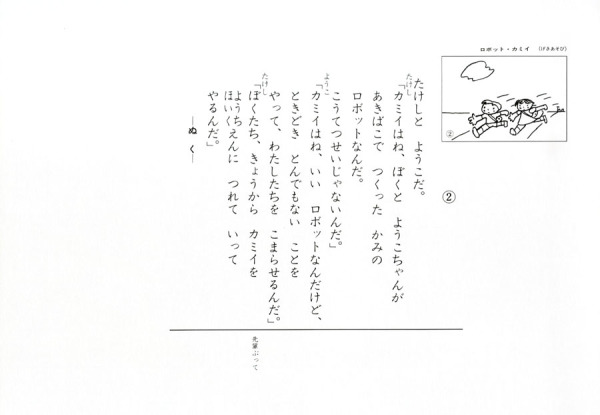 ロボット・カミイ (げきあそび)
②
②
たけしと ようこだ。
たけし
「カミイはね、ぼくと ようこちゃんが
あきばこで つくった かみの
ロボットなんだ。
こうてつせいじゃないんだ。」
ようこ
「カミイはね、いい ロボットなんだけど、
ときどき とんでもない ことを
やって、わたしたちを こまらせるんだ。」
たけし
「ぼくたち、きょうから カミイを
ようちえんに つれて いって
ほいく
やるんだ。」
―ぬ く―
先輩ぶって